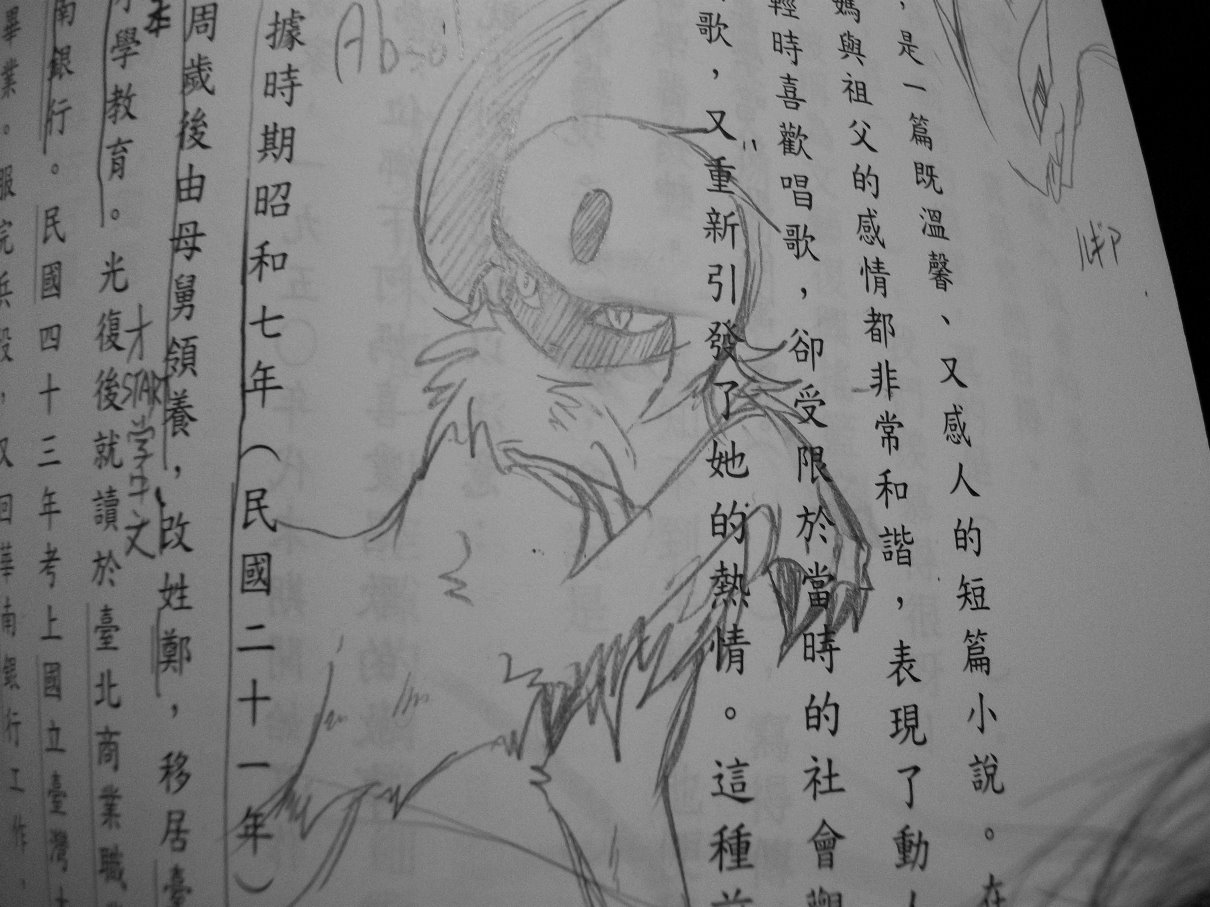 ルギア
，是一篇既溫馨、又感人的短篇小說。在
媽與祖父的感情都非常和諧，表現了動人
輕時喜歡唱歌，卻受限於當時的社會觀
歌，又重新引發了她的熱情。這種
Absol
據時期昭和七年（民國二十一年）
周歲後由母舅領養，改姓鄭，移居臺
才START学中文
學教育。光復後就讀於臺北商業職
南銀行。民國四十三年考上國立臺灣
畢業。服完兵役，又回華南銀行工作，